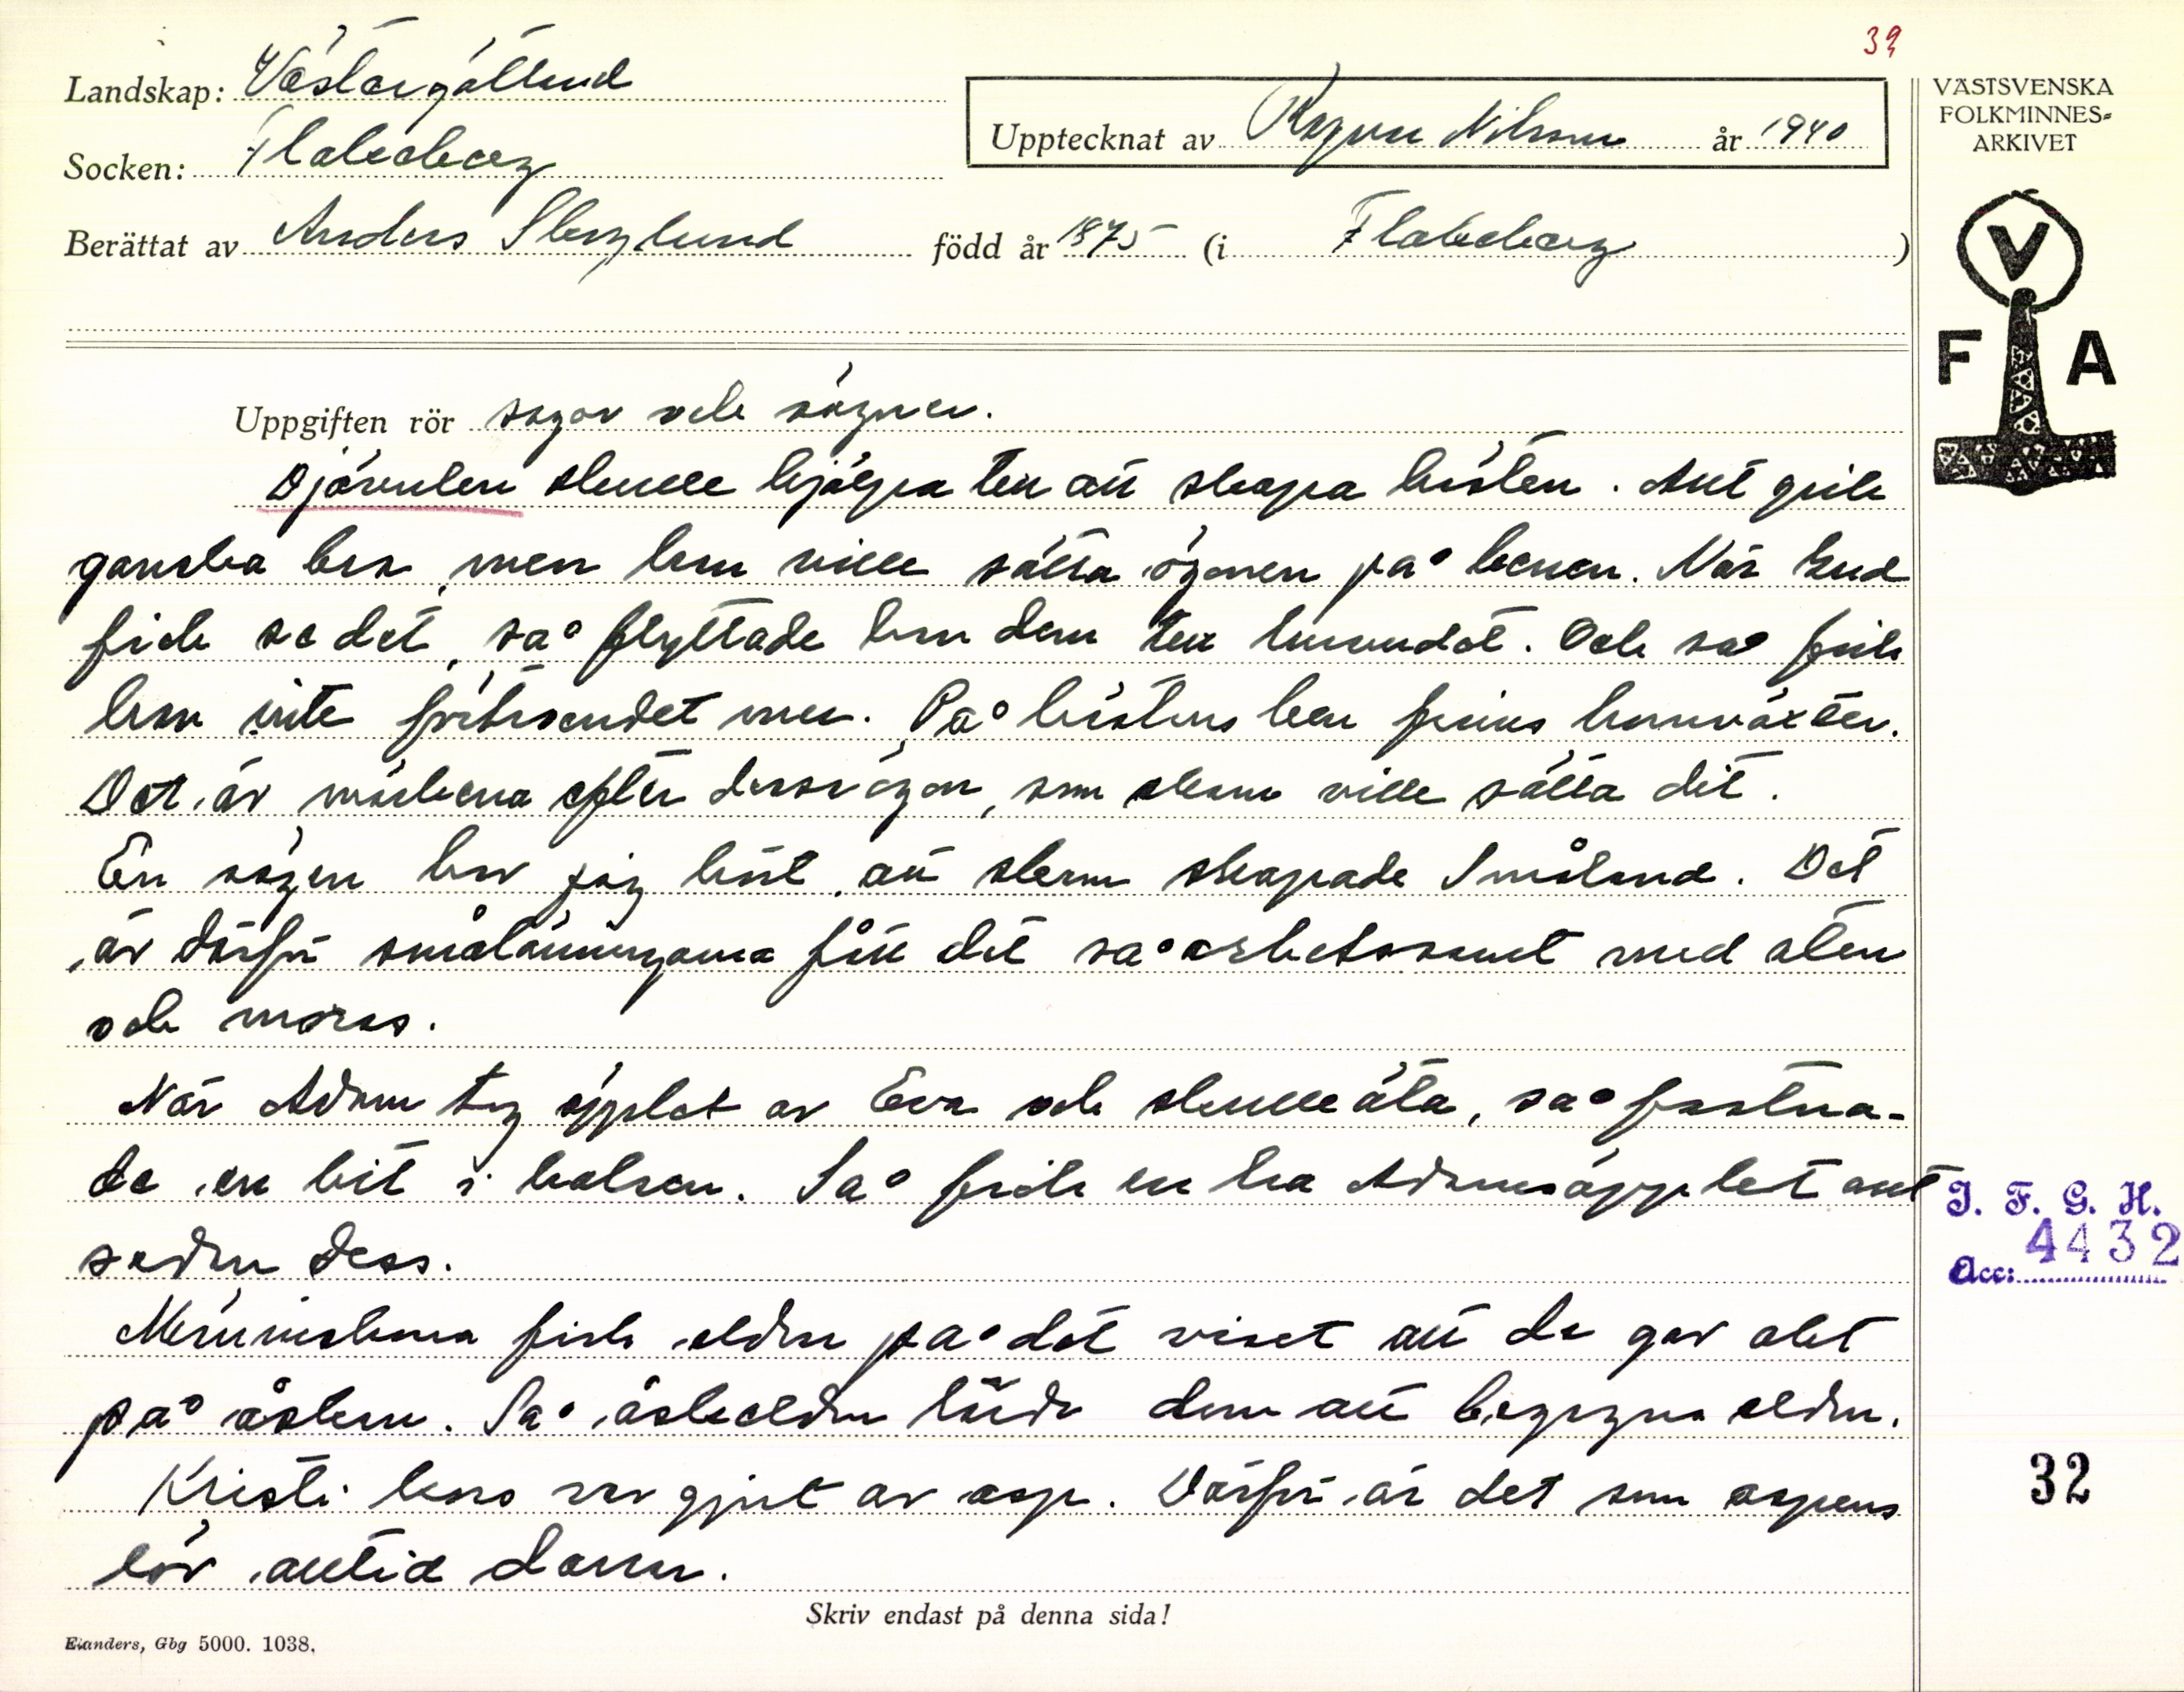 39
Landskap: Västergötland
Socken: Flakeberg
Upptecknat av Ragnar Nilsson år 1940
Berättat av Anders Skoglund född år 1875 (i Flakeberg)
VÄSTSVENSKA
FOLKMINNES-
ARKIVET
V
F A
Uppgiften rör sagor och sägner.
Djävulen skulle hjälpa till att skapa hästen. Allt gick
ganska bra, men han ville sätta ögonen på benen. När Gud
fick se det, så flyttade han dem till huvudet. Och så fick
han inte förtroendet mer. På hästens ben finns hornväxter.
Det är märkena efter dessa ögon, som skam ville sätta dit.
En sägen har jag hört, att skam skapade Småland. Det
är därför smålänningarna fått det så arbetssamt med sten
och moras.
När Adam tog äpplet av Eva och skulle äta, så fastna-
de en bit i halsen. Så fick en ha Adamsäpplet allt
sedan dess.
Människorna fick elden på det viset att de gav akt
på åskan. Så åskelden lärde dem att begagna elden.
Kristi kors var gjort av asp. Därför är det som aspens
löv alltid darra.
I. F. G. H.
Acc: 4432
32
Skriv endast på denna sida!
Elanders, Gbg 5000. 1038.